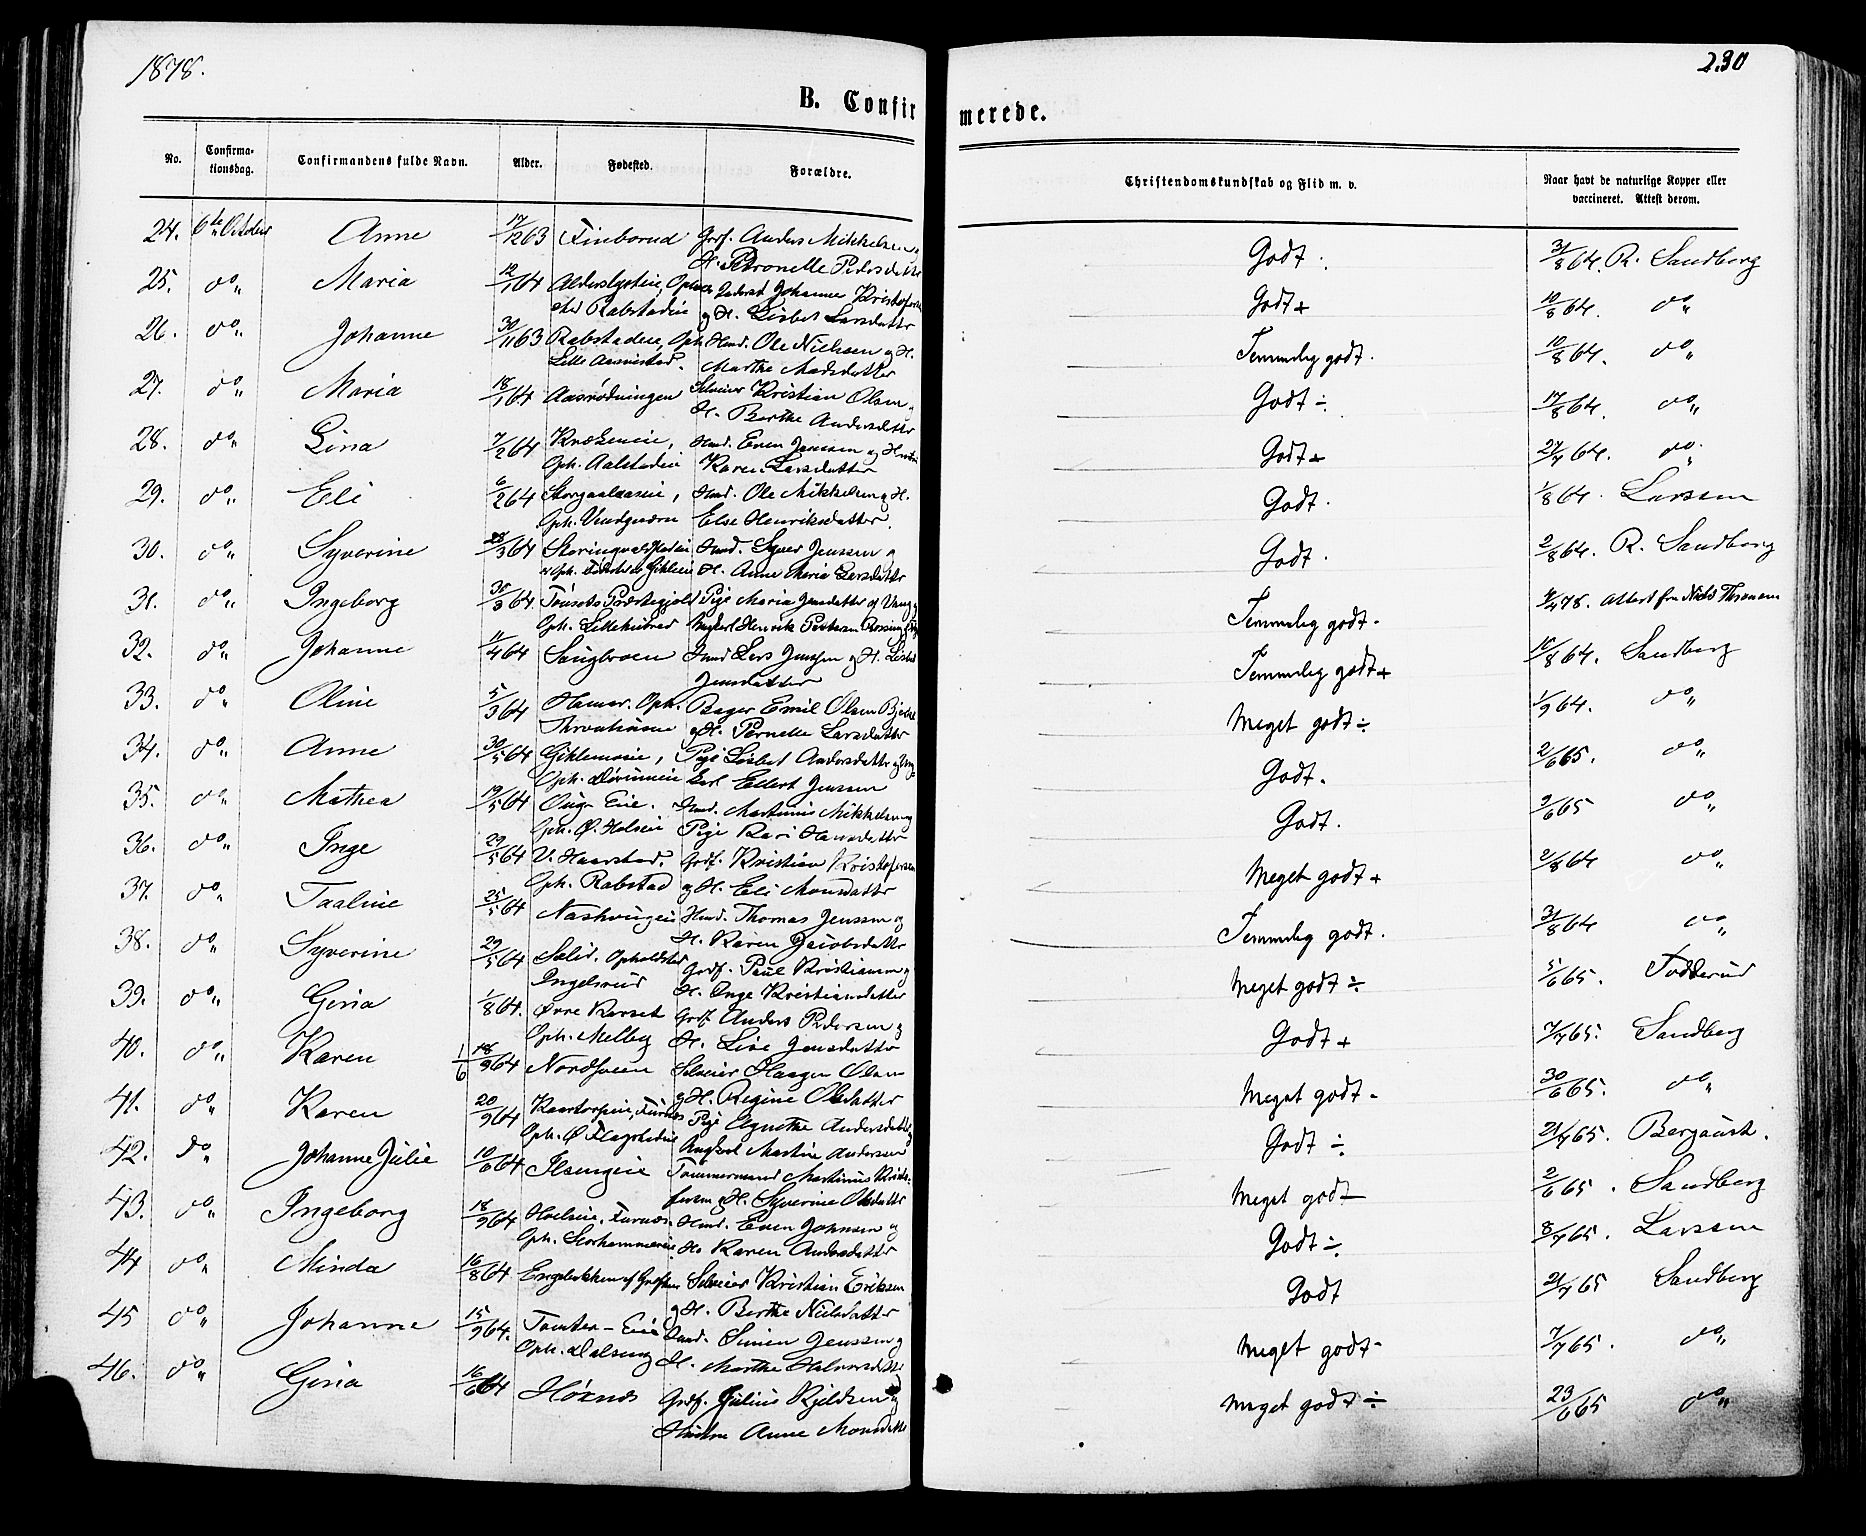 1878.
230
B. Confirmerede.
No. Confirmationsdag. Confirmandens fulde Navn. Alder. Fødested. Forældre. Christendomskundskab og Flid m. v. Naar havt de naturlige Kopper eller vaccineret. Attest derom.
24. 6te Octobr Anne 17/12 63 Finborud Grdf. Anders Mikkelsen, H. Petronelle Pedersdatter Godt. 31/8 64. R. Sandberg
25. do Maria 12/1 64 Opholdssted Rabstadeie Johannes Kristofersen og H. Lisbet Larsdatter Godt + 10/8 64. do
26. do Johanne 30/11 63 Rabstadeie, Oph. Lille Aamestad. Hmd. Ole Nielsen og H. Marthe Madsdatter Temmelig godt. 10/8 64. do
27. do Maria 18/1 64 Aasrødningen Selveier Kristian Olsen, H. Berthe Andersdatter Godt ÷ 17/8 64. do
28. do Lina 7/2 64 Oph. Aalstadeie Hmd. Even Jensen og Hustru Karen Larsdatter Godt + 27/4 64. do
29. do Eli 6/2 64 Oph. Hmd. Ole Mikkelsen og H. Else Henriksdatter. Godt. 1/8 64. Larssen
30. do Syverine 28/3 64 Hmd. Syver Jenssen og H. Anne Maria Larsdatter Godt. 2/8 64. R. Sandberg
31. do Ingeborg 30/3 64 Tønsets Præstegjeld Oph. Pige Maria Jensdatter Ungkarl Henrik Pettersen Temmelig godt. 4/4 78. Attest fra Niels
32. do Johanne 11/4 64 Sangbroen Hmd Lars Jenssen og H. Lisbet Jensdatter Temmelig godt + 10/8 64. Sandberg
33. do Oline 5/3 64 Hamar. Oph. Bager Emil Olsen og H. Pernelle Larsdatter Meget godt ÷ 1/9 64. do
34. do Anne 30/5 64 Oph. Pige Lisbet Andersdatter og Ungkarl Edert Jenssen Godt. 2/6 65. do
35. do Mathea 19/5 64 Eie. Oph. Ø. Holseie Hmd. Martinus Mikkelsen og Pige Kari Hansdatter Godt. 2/6 65 do
36. do Inge 29/5 64 V. Haarstad. Oph. Rabstad Grdf. Kristian Kristofersen og H. Eli Monsdatter Meget godt + 2/8 64 do
37. do Taaline 25/5 64 Hmd. Thomas Jenssen og H. Karen Jacobsdatter Temmelig godt. 31/8 64 do
38. do Syverine 29/5 64 Opholdsted Ingelsrud Grdf. Paul Kristiansen og H. Inge Kristiansdatter Meget godt ÷ 5/6 65. Fodderud
39. do Gina 1/8 64. Øvre Oph. Melby Grdf. Anders Pedersen og H. Lise Jensdatter Godt + 7/7 65. Sandberg
40. do Karen 1/6 18/9 64 Nordsveen Selveier Haagen Olsen og H. Regine Olsdatter Meget godt - 30/6 65. do
41. do Karen 20/9 64 Furnæs Oph. Ø Flagstadeie Pige Agnethe Andersdatter og Ungkarl Martin Andersen Godt ÷ 21/7 65. Bergaust.
42. do Johanne Julie 10/6 64 Ilsengeie Tømmermand Martinus Kristofersen og H. Syverine Olsdatter Meget godt 2/6 65. Sandberg
43. do Ingeborg 18/9 64 Furnæs. Oph. Storhammereie Hmd. Even Johnsen og H. Karen Andersdatter Godt ÷ 8/7 65. Larssen
44 do Minda 16/8 64 Selveier Kristian Eriksen og H. Berthe Nielsdatter Godt 21/7 65 Sandberg
45 do Johanne 15/9 64. Tomter-Eie Oph. Dalseng Hmd. Simen Jenssen og H. Marthe Halvorsdatter Meget godt - 7/7 65. do
46. do Gina 16/6 64 Høxnes Grdf. Julius Kjeldsen og Hustru Anne Monsdatter Meget godt ÷ 23/6 65 do